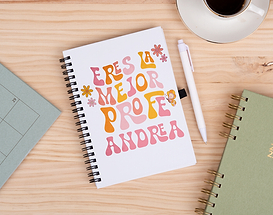 ERES LA
MEJOR
PROFE
ANDREA